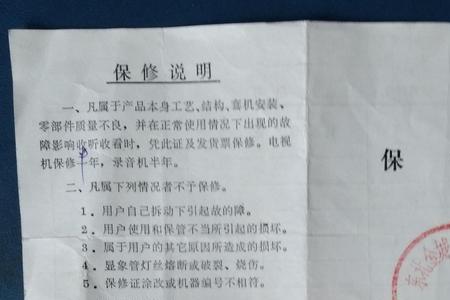 保修说明
一、凡属于产品本身工艺、结构、整机安装、
零部件质量不良，并在正常使用情况下出现的故
障影响收听收看时，凭此证及发货票保修。电视
机保修一年，录音机半年。
二、凡属下列情况者不予保修。
1．用户自己拆动下引起故的障。
2．用户使用和保管不当所引起的损坏。
3．属于用户的其它原因所造成的损坏。
4．显象管灯丝熔断或破裂、烧伤。
5．保修证涂改或机器编号不相符。
保